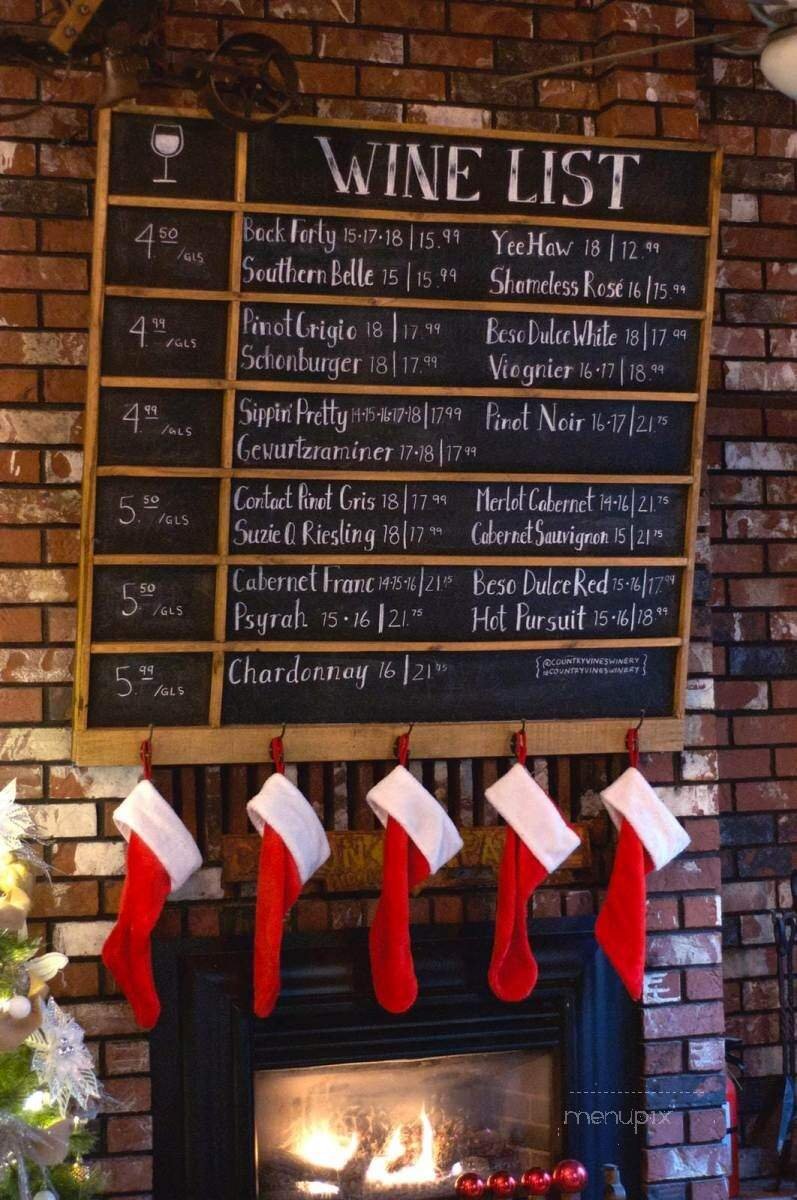 WINE LIST
4.50 /GLS
Back Forty 15·17·18 | 15.99 YeeHaw 18 | 12.99
Southern Belle 15 | 15.99 Shameless Rosé 16 | 15.99
4.99 /GLS
Pinot Grigio 18 | 17.99 Beso Dulce White 18 | 17.99
Schonburger 18 | 17.99 Viognier 16·17 | 18.99
4.99 /GLS
Sippin' Pretty 14·15·16·17·18 | 17.99 Pinot Noir 16·17 | 21.75
Gewurtzraminer 17·18 | 17.99
5.50 /GLS
Contact Pinot Gris 18 | 17.99 Merlot Cabernet 14·16 | 21.75
Suzie Q Riesling 18 | 17.99 Cabernet Sauvignon 15 | 21.75
5.50 /GLS
Cabernet Franc 14·15·16 | 21.75 Beso Dulce Red 15·16 | 17.99
Psyrah 15·16 | 21.75 Hot Pursuit 15·16 | 18.99
5.99 /GLS
Chardonnay 16 | 21.75
{@COUNTRYVINESWINERY}
{#COUNTRYVINESWINERY}
menupix